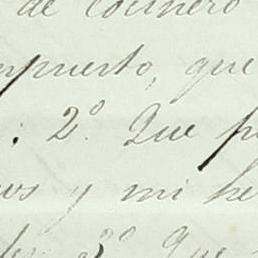 de cocinero
mpuesto, que
: 2º Que p
os y mi he
3º Que